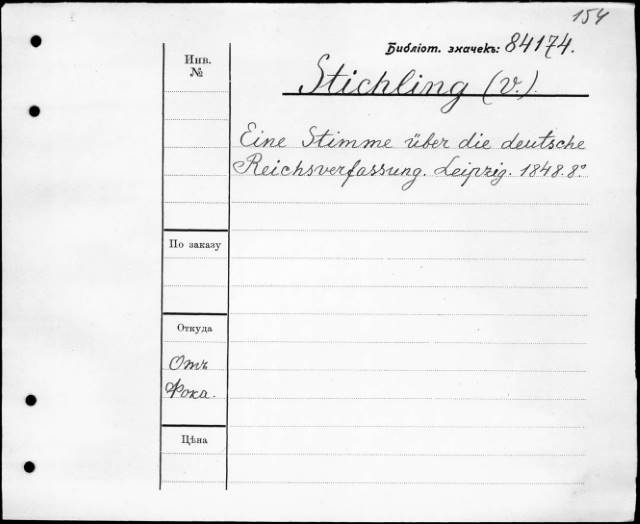 154
Библіот. значекъ: 84174.
Инв.
№
Stichling (v.).
Eine Stimme über die deutsche
Reichsverfassung. Leipzig. 1848. 8º
По заказу
Откуда
Отъ
Фока.
Цѣна